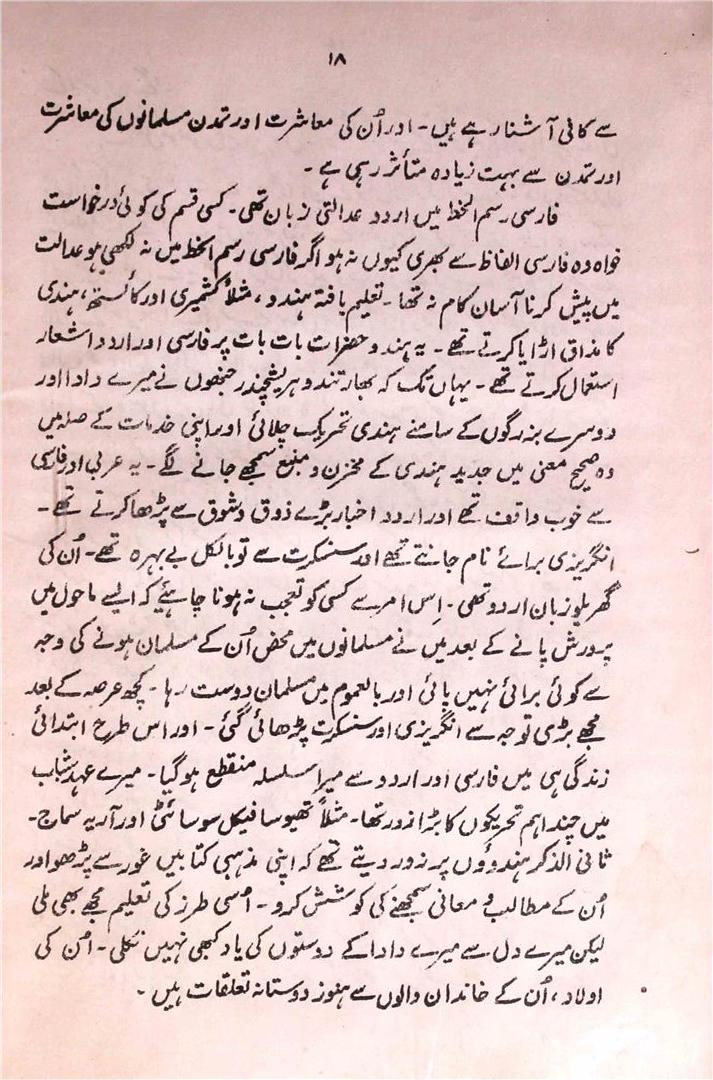 ۱۸
سے کافی آشنا رہے ہیں۔ اور اُن کی معاشرت اور تمدن مسلمانوں کی معاشرت
اور تمدن سے بہت زیادہ متأثر رہی ہے۔
فارسی رسم الخط میں اردو عدالتی زبان تھی۔ کسی قسم کی کوئی درخواست
خواہ وہ فارسی الفاظ سے بھری کیوں نہ ہو اگر فارسی رسم الخط میں نہ لکھی ہو عدالت
میں پیش کرنا آسان کام نہ تھا۔ تعلیم یافتہ ہندو، مثلاً کشمیری اور کائستھ، ہندی
کا مذاق اڑایا کرتے تھے۔ یہ ہندو حضرات بات بات پر فارسی اور اردو اشعار
استعمال کرتے تھے۔ یہاں تک کہ بھارتندو ہریشچندر جنھوں نے میرے دادا اور
دوسرے بزرگوں کے سامنے ہندی تحریک چلائی اور اپنی خدمات کے صلہ میں
وہ صحیح معنی میں جدید ہندی کے مخزن و منبع سمجھے جانے لگے۔ یہ عربی اور فارسی
سے خوب واقف تھے اور اردو اخبار بڑے ذوق و شوق سے پڑھا کرتے تھے۔
انگریزی برائے نام جانتے تھے اور سنسکرت سے تو بالکل بے بہرہ تھے۔ اُن کی
گھریلو زبان اردو تھی۔ اِس امر سے کسی کو تعجب نہ ہونا چاہئیے کہ ایسے ماحول میں
پرورش پانے کے بعد میں نے مسلمانوں میں محض اُن کے مسلمان ہونے کی وجہ
سے کوئی برائی نہیں پائی اور بالعموم میں مسلمان دوست رہا۔ کچھ عرصہ کے بعد
مجھے بڑی توجہ سے انگریزی اور سنسکرت پڑھائی گئی۔ اور اس طرح ابتدائی
زندگی ہی میں فارسی اور اردو سے میرا سلسلہ منقطع ہو گیا۔ میرے عہد شباب
میں چند اہم تحریکوں کا بڑا زور تھا۔ مثلاً تھیوسافیکل سوسائٹی اور آریہ سماج۔
ثانی الذکر ہندوؤں پر زور دیتے تھے کہ اپنی مذہبی کتابیں غور سے پڑھو اور
اُن کے مطالب و معانی سمجھنے کی کوشش کرو۔ اُسی طرز کی تعلیم مجھے بھی ملی
لیکن میرے دل سے میرے دادا کے دوستوں کی یاد کبھی نہیں نکلی۔ اُن کی
اولاد، اُن کے خاندان والوں سے ہنوز دوستانہ تعلقات ہیں۔